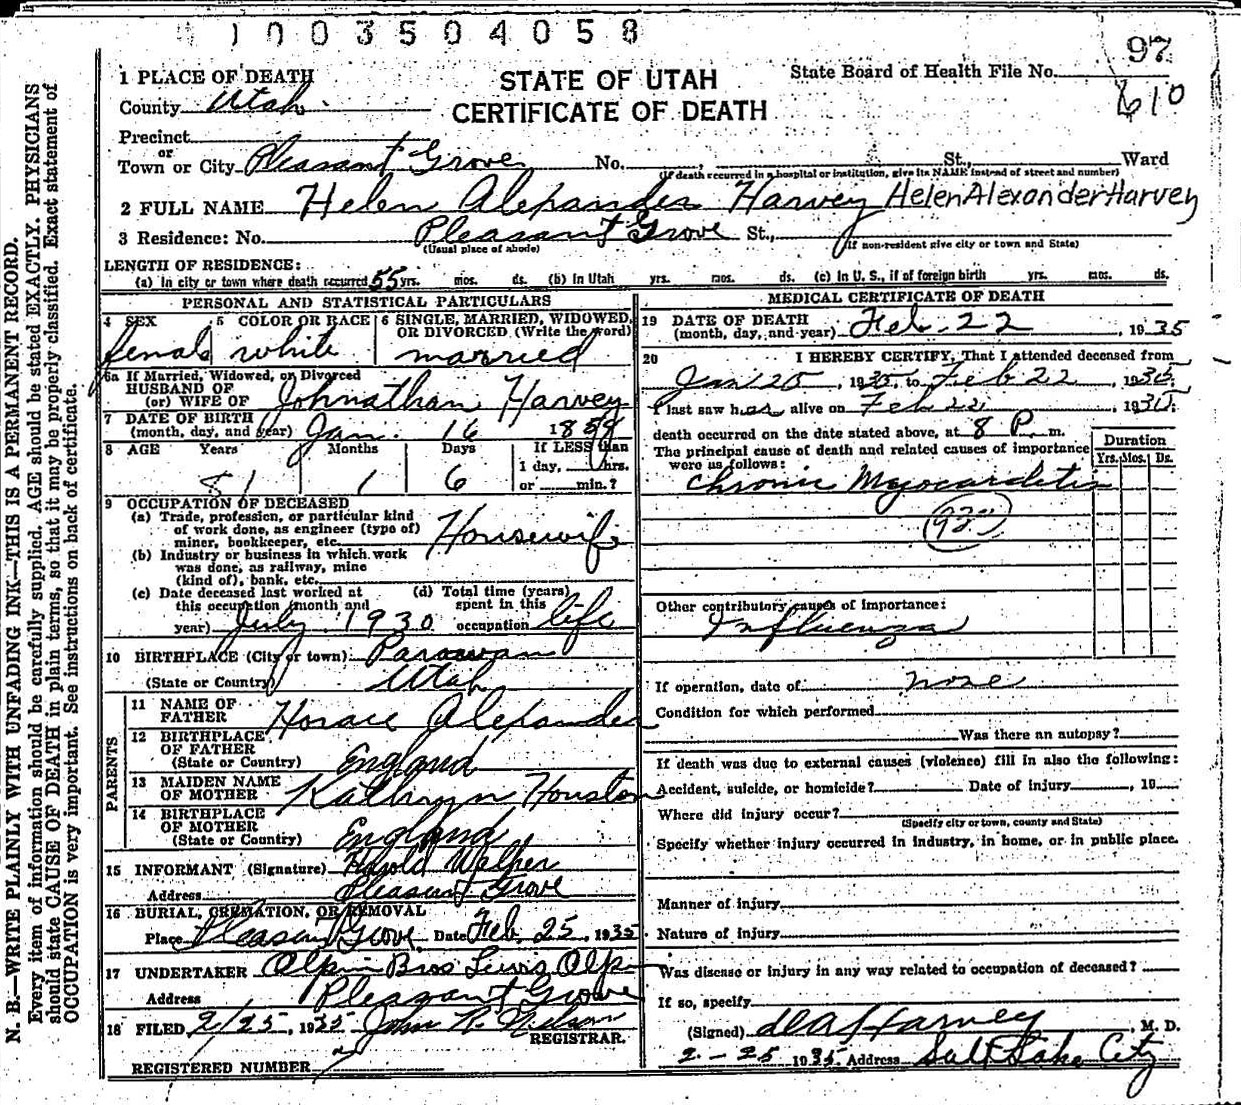 1003504058
97
STATE OF UTAH
CERTIFICATE OF DEATH
State Board of Health File No.
610
1 PLACE OF DEATH
County Utah
Precinct
or
Town or City Pleasant Grove No. , St., Ward
(If death occurred in a hospital or institution, give its NAME instead of street and number)
2 FULL NAME Helen Alexander Harvey Helen Alexander Harvey
3 Residence: No. Pleasant Grove St.,
(Usual place of abode) (If non-resident give city or town and State)
LENGTH OF RESIDENCE:
(a) In city or town where death occurred 55 yrs. mos. ds. (b) In Utah yrs. mos. ds. (c) In U. S., if of foreign birth yrs. mos. ds.
PERSONAL AND STATISTICAL PARTICULARS
4 SEX 5 COLOR OR RACE 6 SINGLE, MARRIED, WIDOWED, OR DIVORCED (Write the word)
female white married
6a If Married, Widowed, or Divorced
HUSBAND OF
(or) WIFE OF Johnathan Harvey
7 DATE OF BIRTH
(month, day, and year) Jan. 16 185
8 AGE Years Months Days If LESS than
1 day, hrs.
81 1 6 or min.?
9 OCCUPATION OF DECEASED
(a) Trade, profession, or particular kind
of work done, as engineer (type of)
miner, bookkeeper, etc. Housewife
(b) Industry or business in which work
was done, as railway, mine
(kind of), bank, etc.
(c) Date deceased last worked at
this occupation (month and
year) July 1930
(d) Total time (years)
spent in this
occupation life
10 BIRTHPLACE (City or town) Parowan
(State or Country) Utah
PARENTS
11 NAME OF
FATHER Horace Alexander
12 BIRTHPLACE
OF FATHER
(State or Country) England
13 MAIDEN NAME
OF MOTHER Kathryn Houston
14 BIRTHPLACE
OF MOTHER
(State or Country) England
15 INFORMANT (Signature) Harold Walker
Address Pleasant Grove
16 BURIAL, CREMATION, OR REMOVAL
Place Pleasant Grove Date Feb. 25, 1935
17 UNDERTAKER Olpin Bros Lewis Olpin
Address Pleasant Grove
18 FILED 2/25, 1935 John R. Nelson
REGISTRAR.
REGISTERED NUMBER 7
MEDICAL CERTIFICATE OF DEATH
19 DATE OF DEATH
(month, day, and year) Feb. 22, 1935
20 I HEREBY CERTIFY, That I attended deceased from
Jan 25, 1935, to Feb 22, 1935
I last saw her alive on Feb 22, 1935
death occurred on the date stated above, at 8 P. m.
The principal cause of death and related causes of importance
were as follows:
Duration
Yrs. Mos. Ds.
Chronic Myocarditis
Other contributory causes of importance:
Influenza
If operation, date of none
Condition for which performed
Was there an autopsy?
If death was due to external causes (violence) fill in also the following:
Accident, suicide, or homicide? Date of injury , 19
Where did injury occur?
(Specify city or town, county and State)
Specify whether injury occurred in industry, in home, or in public place.
Manner of injury
Nature of injury
Was disease or injury in any way related to occupation of deceased?
If so, specify
(Signed) Harvey, M. D.
2-25 1935 Address Salt Lake City
N. B.—WRITE PLAINLY WITH UNFADING INK—THIS IS A PERMANENT RECORD.
Every item of information should be carefully supplied. AGE should be stated EXACTLY. PHYSICIANS
should state CAUSE OF DEATH in plain terms, so that it may be properly classified. Exact statement of
OCCUPATION is very important. See instructions on back of certificate.